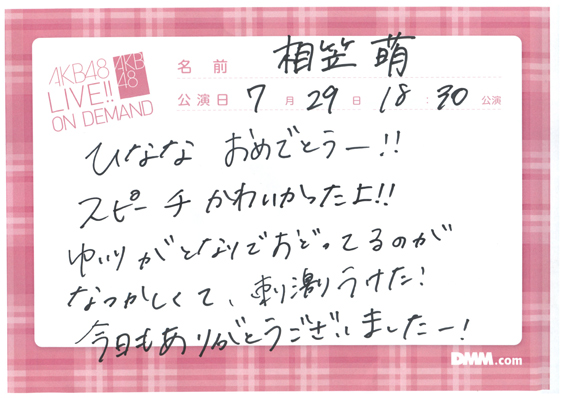 AKB48
LIVE!!
ON DEMAND
AKB
48
名前 相笠 萌
公演日 7月29日 18:30公演
ひなな おめでとうー!!
スピーチかわいかったよ!!
ゆいりがとなりでおどってるのが
なつかしくて、刺激うけた!
今日もありがとうございましたー!
DMM.com